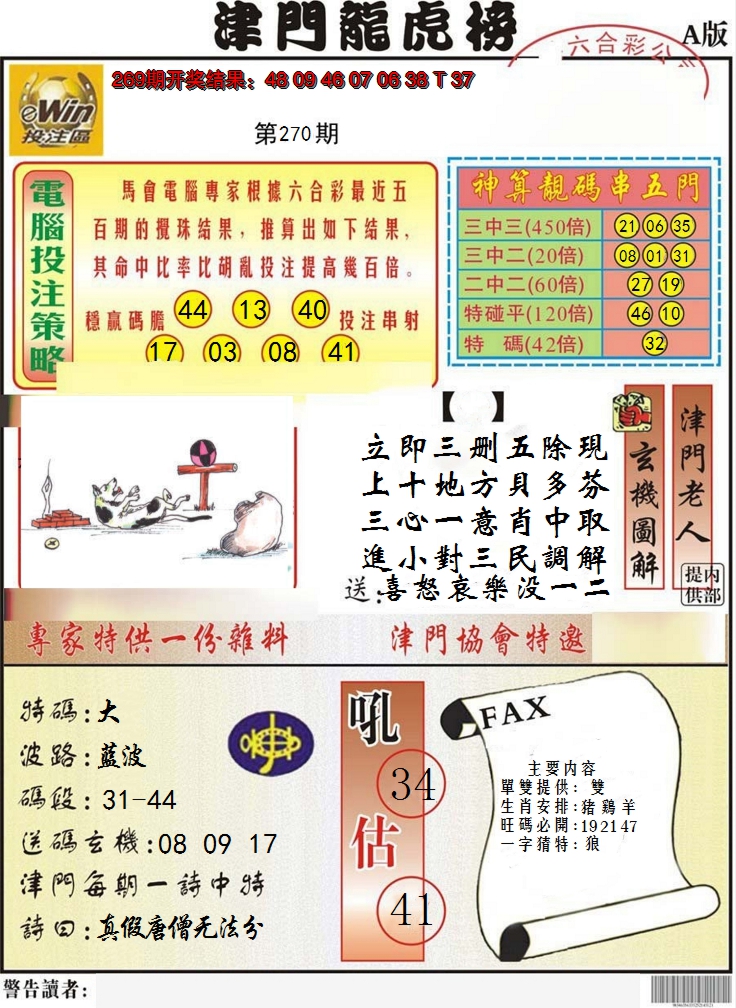 津門龍虎榜
六合彩公
A版
269期开奖结果：48 09 46 07 06 38 T 37
eWin
投注區
第270期
電腦投注策略
馬會電腦專家根據六合彩最近五
百期的攪珠结果，推算出如下结果，
其命中比率比胡亂投注提高幾百倍。
穩贏碼膽 44 13 40 投注串射
17 03 08 41
神算靚碼串五門
三中三(450倍) 21 06 35
三中二(20倍) 08 01 31
二中二(60倍) 27 19
特碰平(120倍) 46 10
特 碼(42倍) 32
【 】
立即三删五除現
上十地方貝多芬
三心一意肖中取
進小對三民調解
送:喜怒哀樂没一二
玄機圖解
津門老人
内部提供
專家特供一份雜料
津門協會特邀
特碼:大
波路:藍波
碼段:31-44
送碼玄機:08 09 17
津門每期一詩中特
詩曰:真假唐僧无法分
吼
34
估
41
FAX
主要内容
單雙提供：雙
生肖安排:猪鷄羊
旺碼必開:192147
一字猜特:狼
警告讀者: